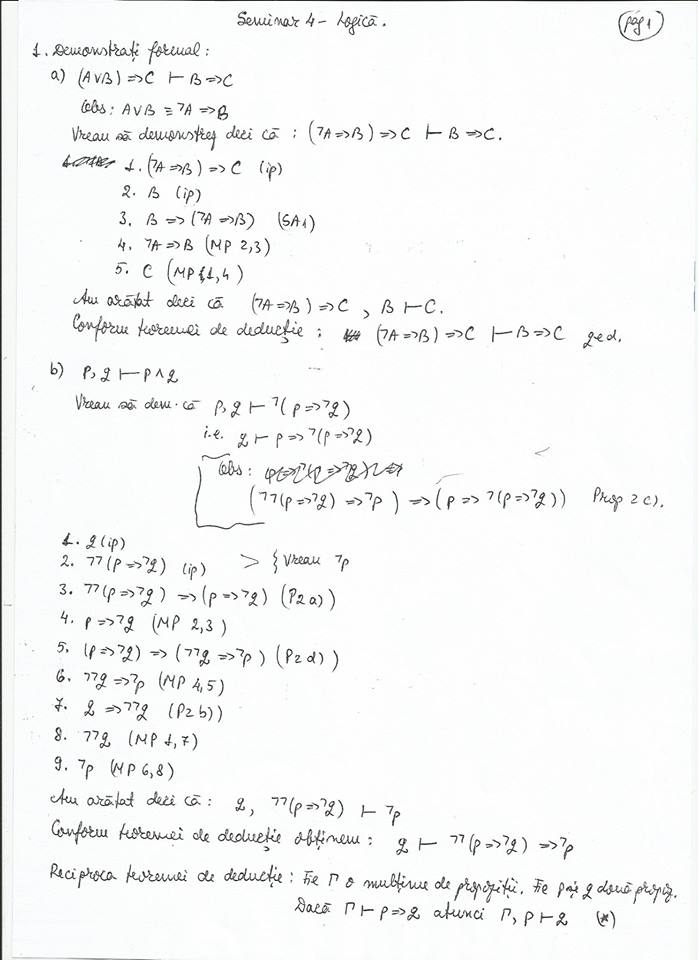 Seminar 4 - Logică.
pag 1
1. Demonstrați formal:
a) (A∨B) => C ⊢ B => C
Obs: A∨B ≡ ¬A => B
Vreau să demonstrez deci că : (¬A => B) => C ⊢ B => C.
1. (¬A => B) => C (ip)
2. B (ip)
3. B => (¬A => B) (SA1)
4. ¬A => B (MP 2,3)
5. C (MP 1,4)
Am arătat deci că (¬A => B) => C , B ⊢ C.
Conform teoremei de deducție : (¬A => B) => C ⊢ B => C q.e.d.
b) p, q ⊢ p ∧ q
Vreau să dem. că p, q ⊢ ¬(p => ¬q)
i.e. q ⊢ p => ¬(p => ¬q)
Obs:
(¬¬(p => ¬q) => ¬p) => (p => ¬(p => ¬q)) Prop 2 c).
1. q (ip)
2. ¬¬(p => ¬q) (ip) > { Vreau ¬p
3. ¬¬(p => ¬q) => (p => ¬q) (P2 a))
4. p => ¬q (MP 2,3)
5. (p => ¬q) => (¬¬q => ¬p) (P2 d))
6. ¬¬q => ¬p (MP 4,5)
7. q => ¬¬q (P2 b))
8. ¬¬q (MP 1,7)
9. ¬p (MP 6,8)
Am arătat deci că : q, ¬¬(p => ¬q) ⊢ ¬p
Conform teoremei de deducție obținem : q ⊢ ¬¬(p => ¬q) => ¬p
Reciproca teoremei de deducție : Fie Γ o mulțime de propoziții. Fie p și q două propoz.
Dacă Γ ⊢ p => q atunci Γ, p ⊢ q (*)